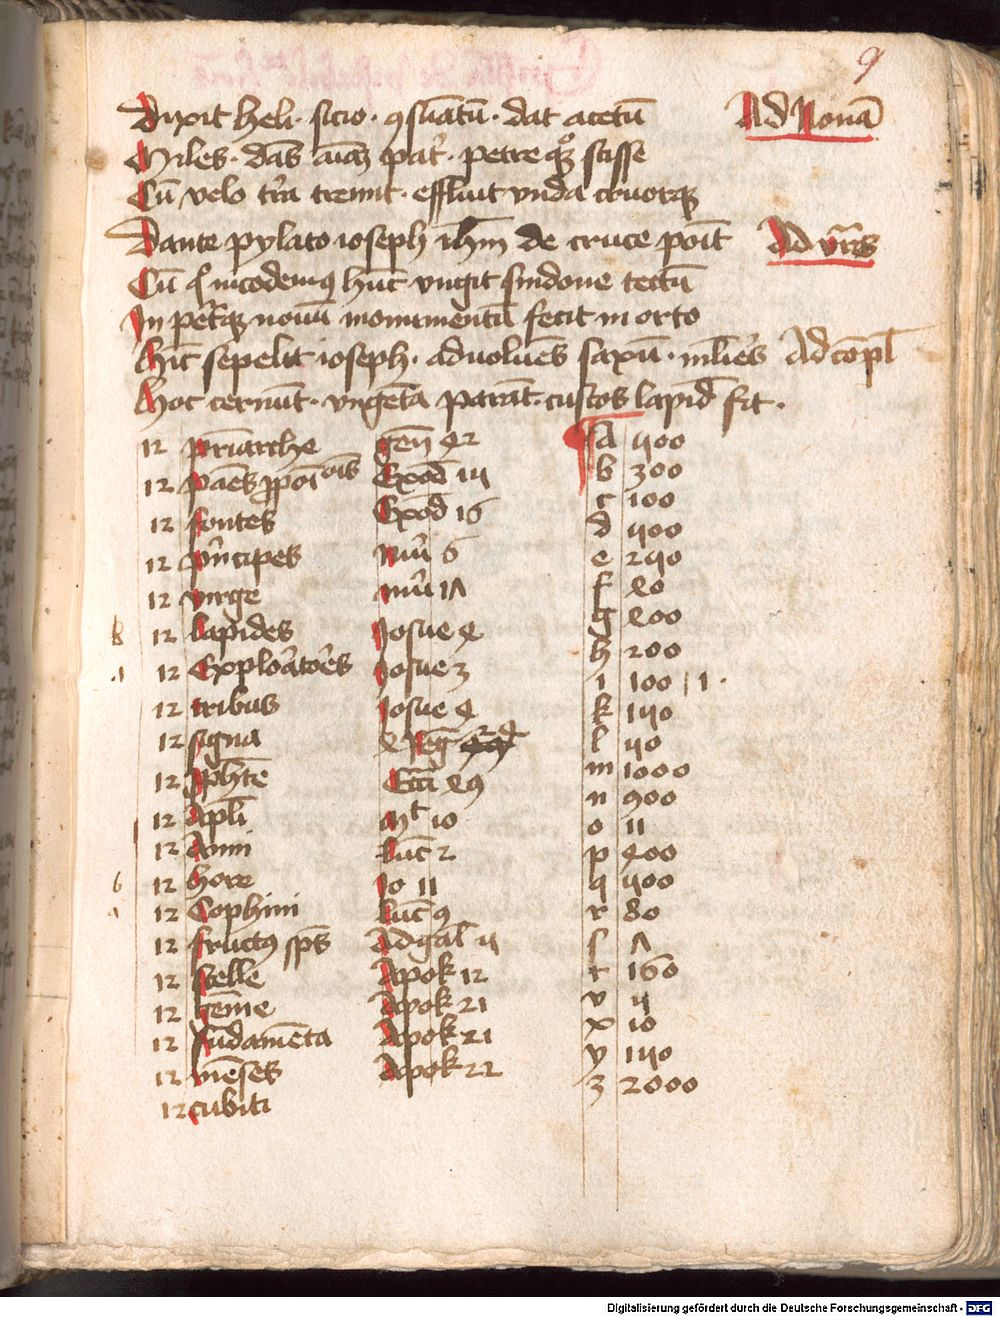 9
Dixit heli · sicio · ꝯsūatū · dat acetū Ad Nonā
Miles · dās aīaȝ pat̛ · petre qꝫ scisse
Cū velo t̛ra tremit · effluit vnda cruorqꝫ
Dante pylato ioseph ihm̄ de cruce poīt Ad vr̄as
Cū nicodemꝯ hūc vngit sindone tectū
In pet̛qꝫ nouū monumentū fecit in orto
Hic sepelit ioseph · aduoluēs saxū · ml̛ieres Ad cōpl̄
Hoc cernūt · vngēta parāt · custos lapid̄ fit ·
12 pr̄iarche gen̄ 42 a 400
12 pāes ꝓpoīcōis Exod̄ b 300
12 fontes Exod̄ 16 c 100
12 pͥncipes nūi 6 d 400
12 virge nūi 17 e 240
12 lapides Josue 4 f 40
12 Exploātoēs Josue 3 g 400
12 tribus Josue 4 h 200
12 signa i 100 | 1 ·
12 ꝓph̄te Ecci 49 k 140
12 apl̄i mt 10 l 40
12 Anni luc̄ 2 m 1000
12 hore Jo 11 n 900
12 Cophini luc̄ 9 o 11
12 fructꝯ sp̄s Ad gal̄ p 400
12 stelle Apok 12 q 400
12 gēme Apok 21 r 80
12 fūdamēta Apok 21 s 7
12 mēses Apok 22 t 160
12 cubiti v 4
x 10
y 140
z 2000
Digitalisierung gefördert durch die Deutsche Forschungsgemeinschaft - DFG